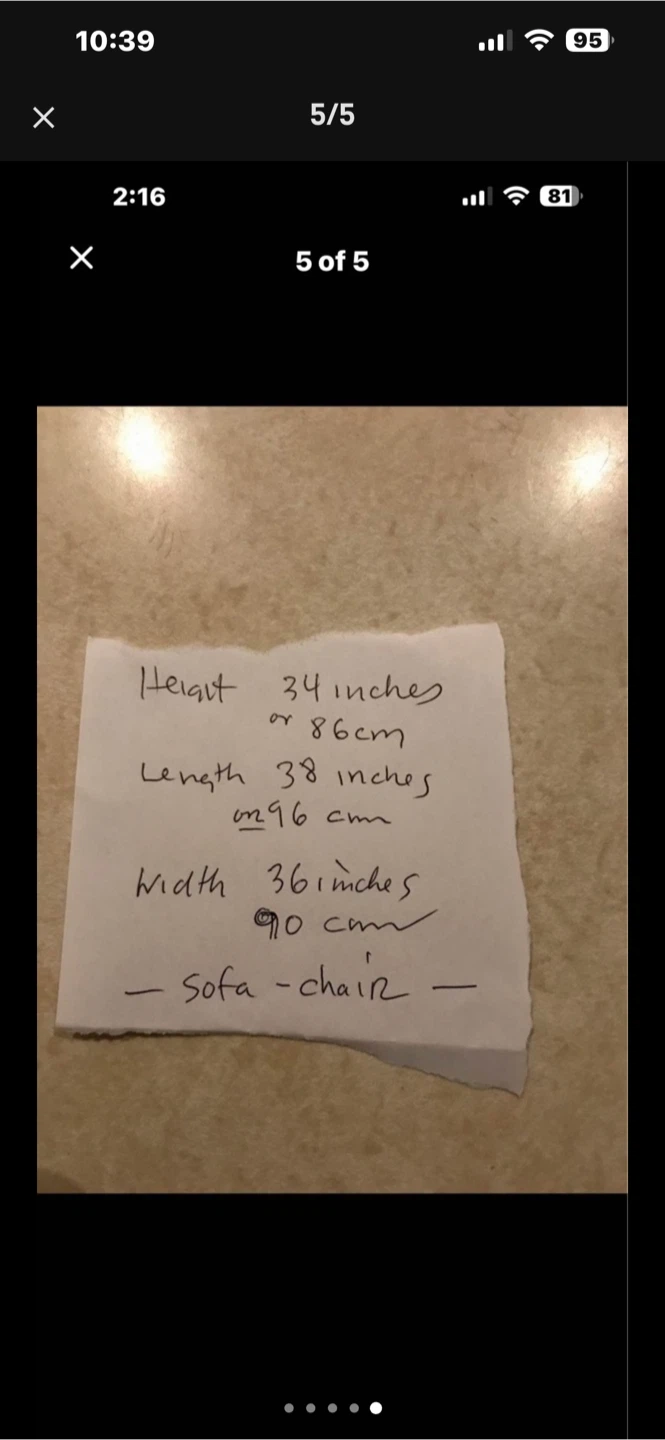 10:39
95
5/5
2:16
81
5 of 5
Height 34 inches
or 86cm
Length 38 inches
or 96 cm
Width 36 inches
90 cm
— Sofa - chair —